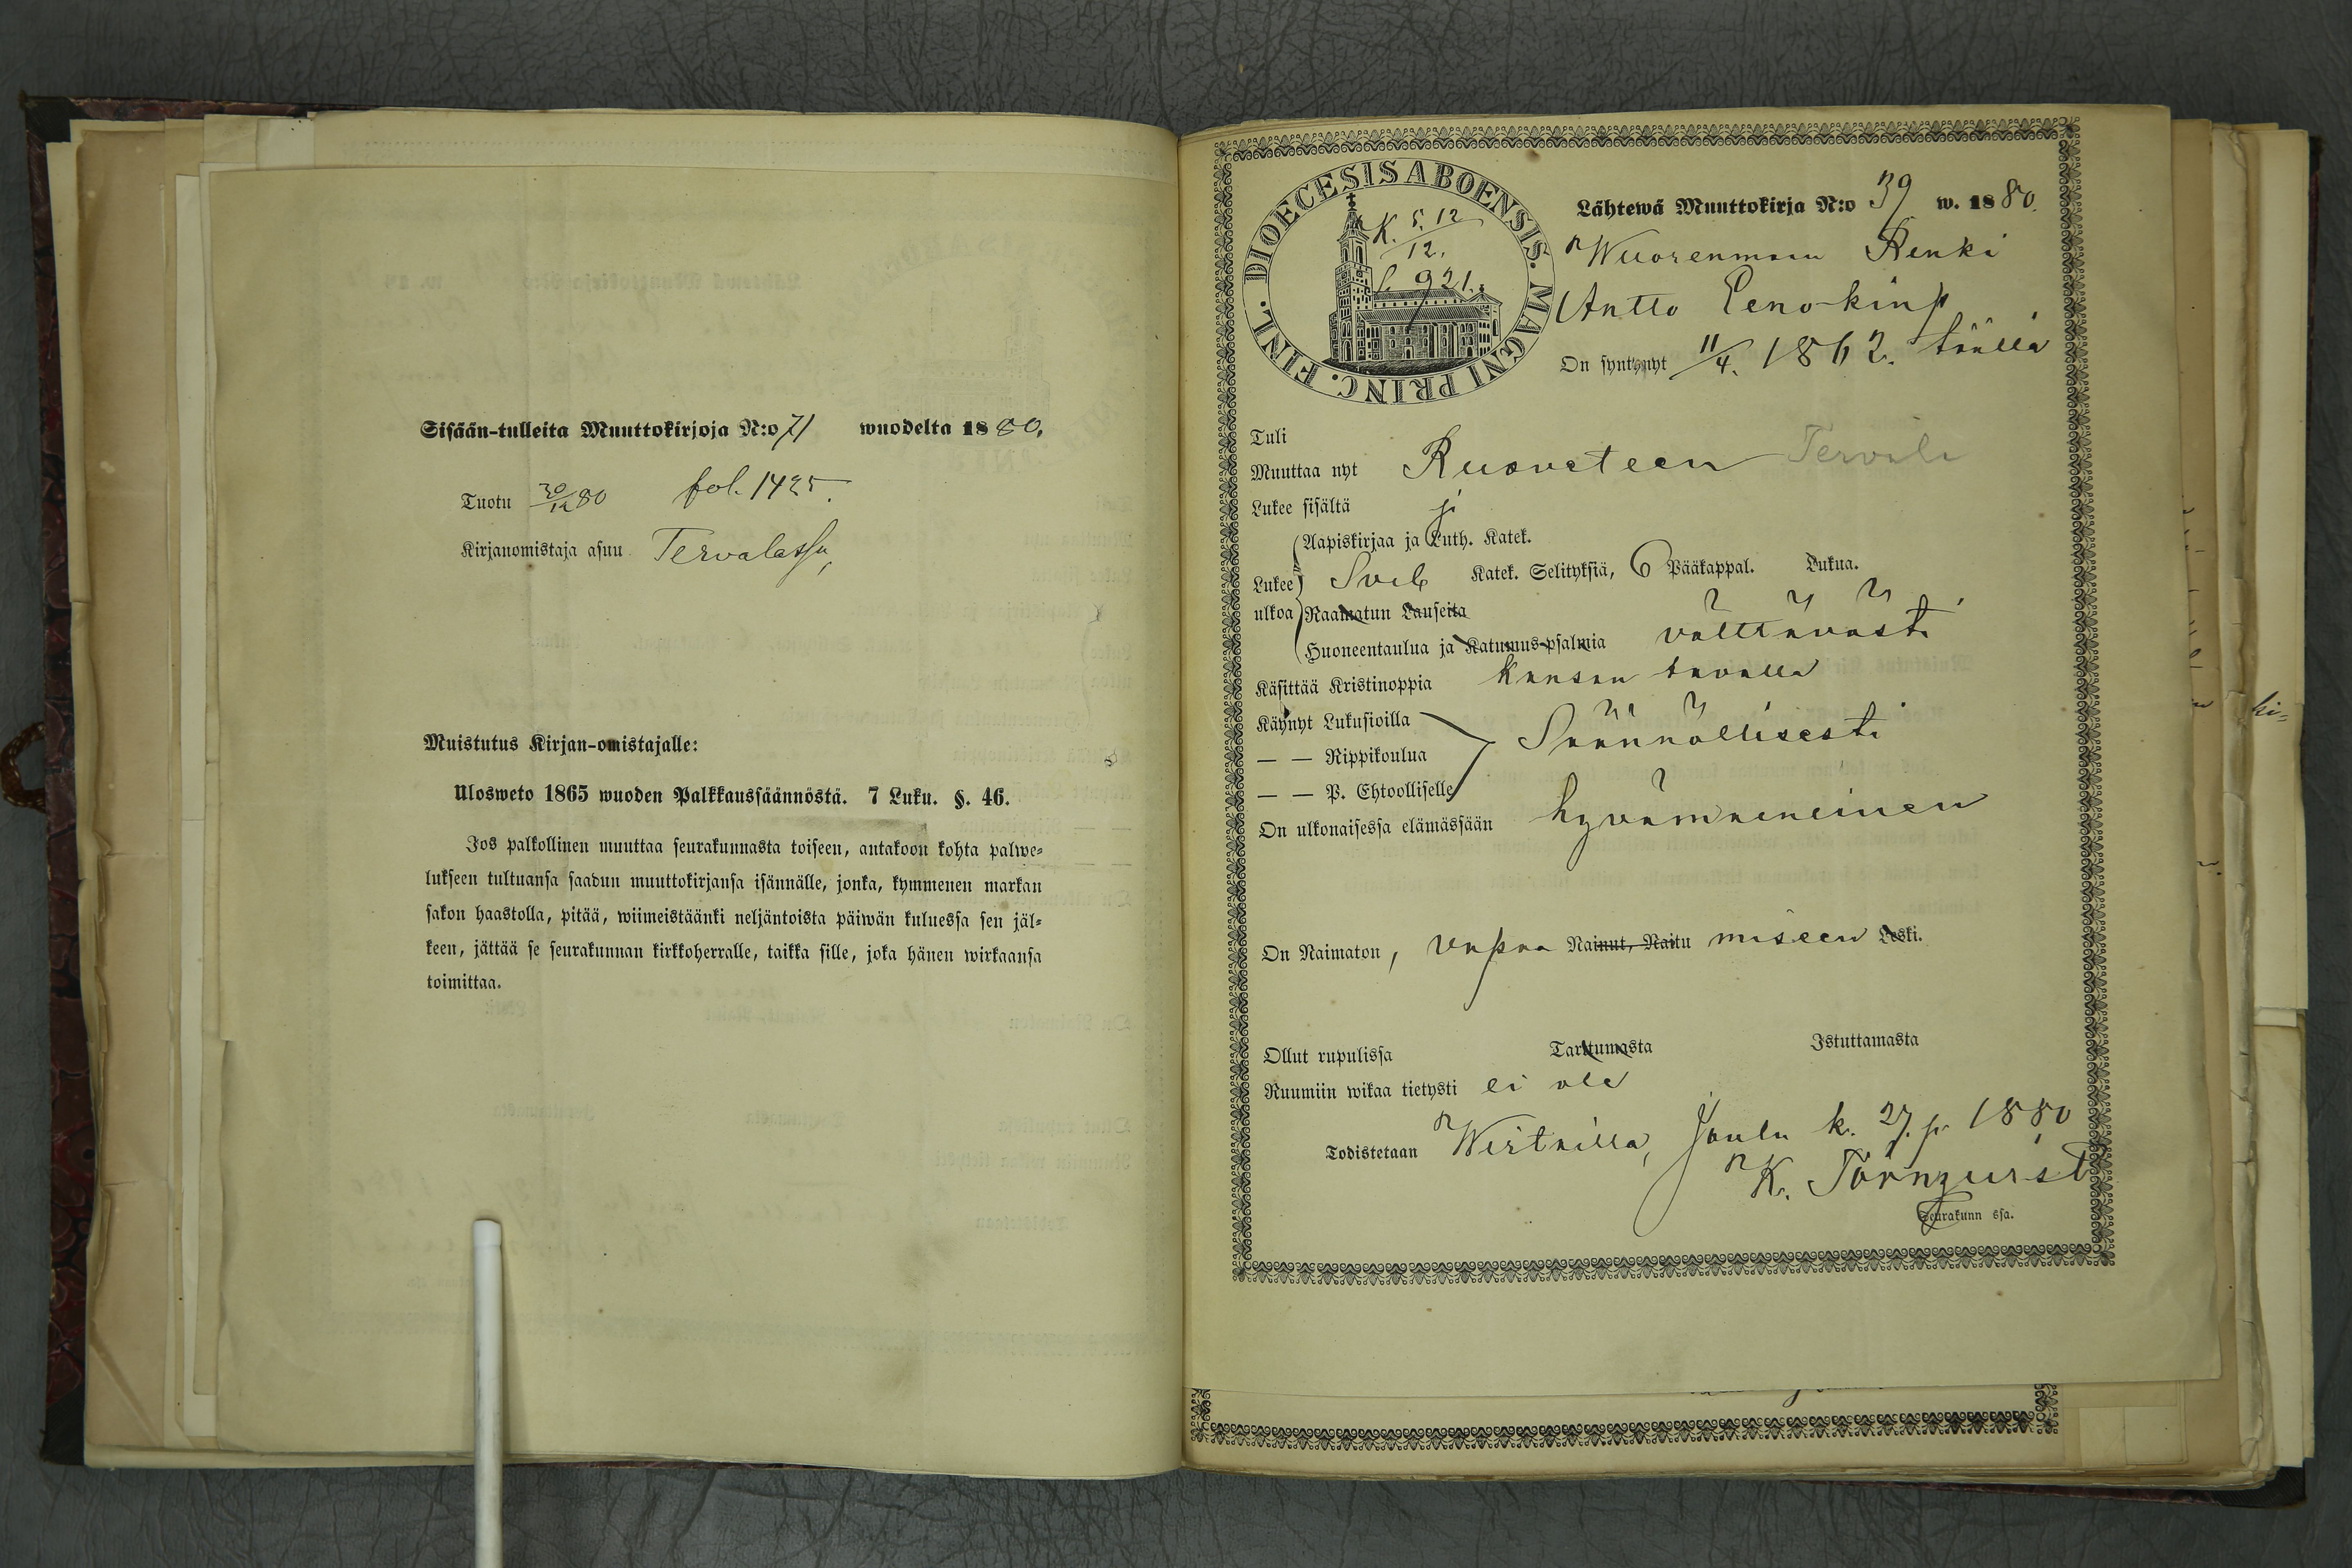 Sisään-tulleita Muuttokirjoja N:o 71 wuodelta 1880.
Tuotu 30/12 80 fol. 1425.
Kirjanomistaja asuu Tervalassa,
Muistutus Kirjan-omistajalle:
Ulosweto 1865 wuoden Palkkaussäännöstä. 7 Luku. §. 46.
Jos palkollinen muuttaa seurakunnasta toiseen, antakoon kohta palwe-
lukseen tultuansa saadun muuttokirjansa isännälle, jonka, kymmenen markan
sakon haastolla, pitää, wiimeistäänki neljäntoista päiwän kuluessa sen jäl-
keen, jättää se seurakunnan kirkkoherralle, taikka sille, joka hänen wirkaansa
toimittaa.
DIOECESIS ABOENSIS. MAGNI PRINC. FINL.
K. 5. 12
12.
S. 921.
Lähtewä Muuttokirja N:o 39 w. 1880.
Wuorenmaan Renki
Antto Eenokinp
On syntynyt 11/4. 1862. täällä
Tuli
Muuttaa nyt Ruoveteen Tervala
Lukee sisältä j
Aapiskirjaa ja Luth. Katek.
Lukee Sveb Katek. Selityksiä, 6 Pääkappal. Lukua.
ulkoa Raamatun Lauseita
Huoneentaulua ja Katumus-psalmia välttävästi
Käsittää Kristinoppia kansan tavalla
Käynyt Lukusioilla
— — Rippikoulua Säännöllisesti
— — P. Ehtoolliselle
On ulkonaisessa elämässään hyvämaineinen
On Naimaton, vapaa Nainut, Naitu miseen Leski.
Ollut rupulissa Tarttumasta Istuttamasta
Ruumiin wikaa tietysti ei ole
Todistetaan Wirtailla, Joulu k. 27. p. 1880
K. Törnqvist
Seurakunn ssa.